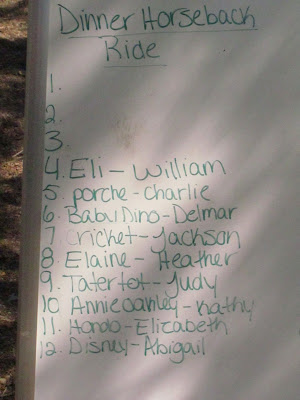 Dinner Horseback
Ride
1.
2.
3.
4. Eli - William
5. porche - charlie
6. Baby Dino - Delmar
7 cricket - Jackson
8. Elaine - Heather
9. Tatertot - Judy
10. Annie oakley - Kathy
11. Hondo - Elizabeth
12. Disney - Abigail